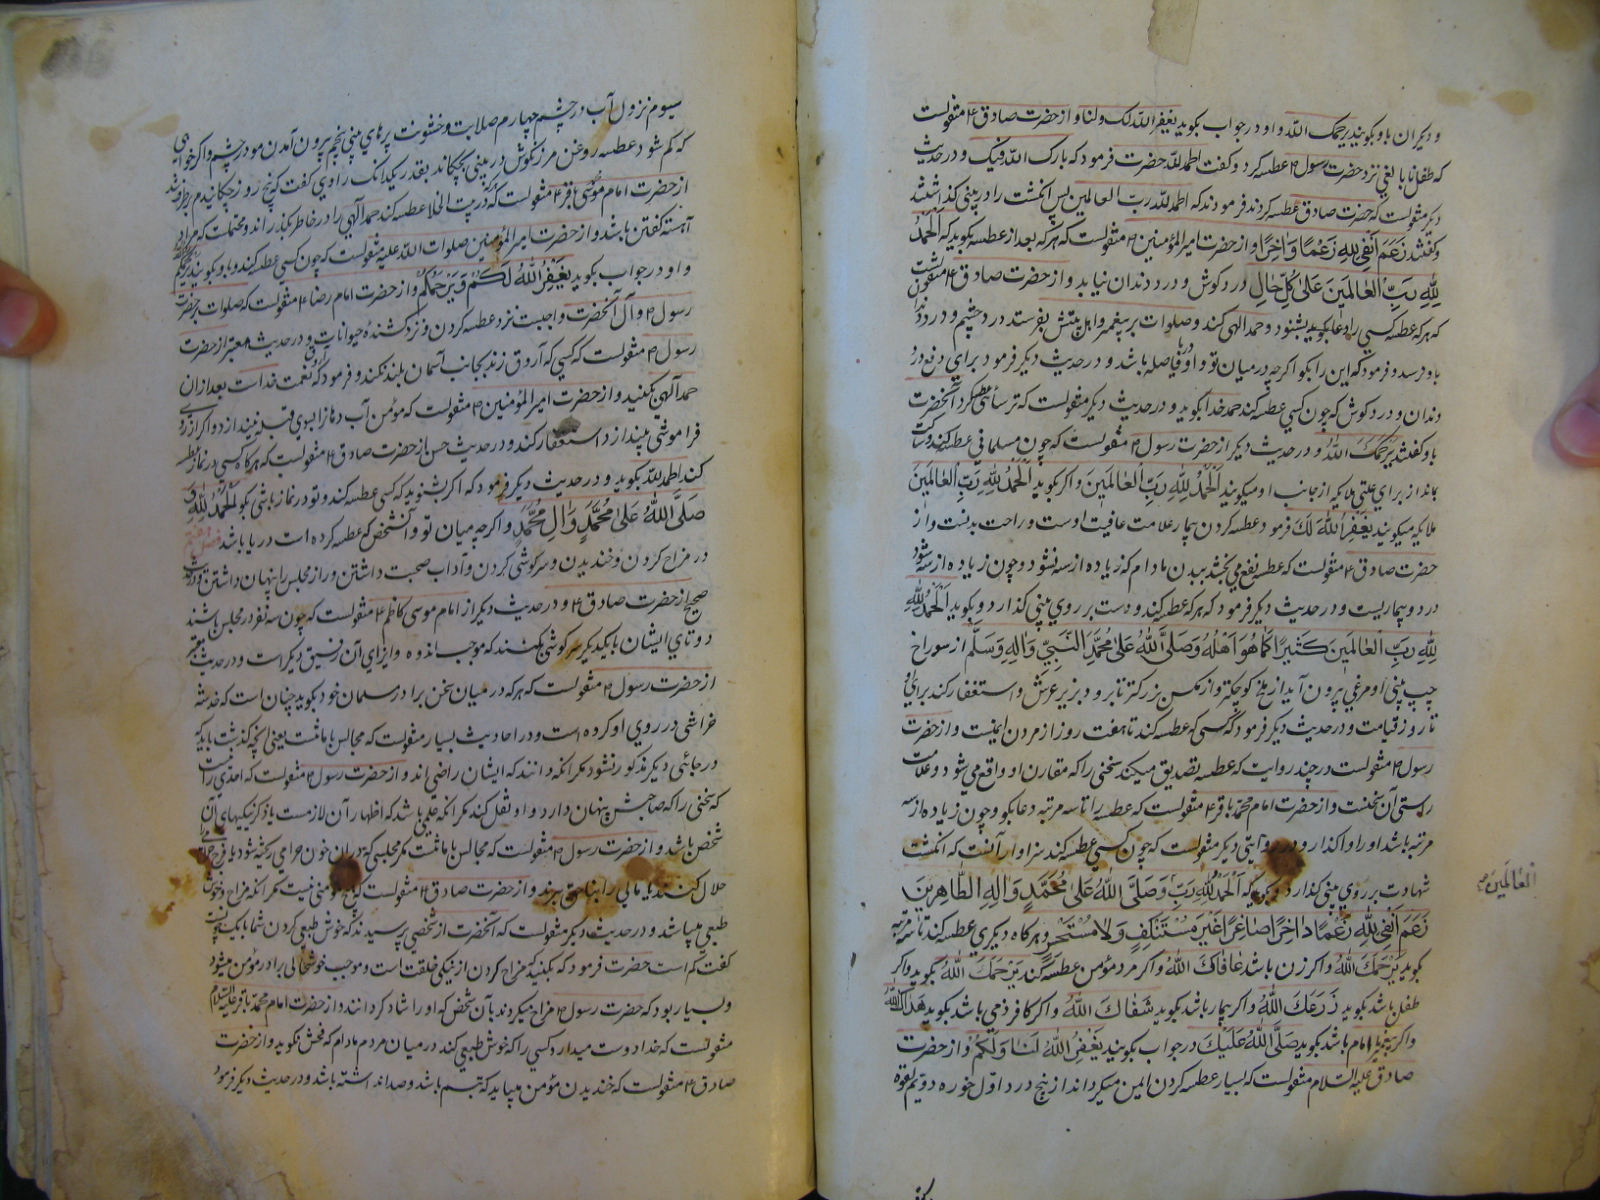 و دیکران باو بکویند یرحمک الله و او در جواب بکوید یغفر الله لک ولنا و از حضرت صادق ۴ منقولست
که طفل نابالغی نزد حضرت رسول ۳ عطسه کرد و کفت الحمد لله حضرت فرمود که بارک الله فیک و در حدیث
دیکر منقولست که حضرت صادق عطسه کردند فرمودند که الحمد لله رب العالمین پس انکشت را در بینی کذاشتند
و کفتند رَغَمَ اَنفی لِلّهِ رَغمًا داخرًا و از حضرت امیر المؤمنین ۴ منقولست که هر که بعد از عطسه بکوید که اَلحَمدُ
لِلّهِ رَبِّ العٰالَمینَ عَلیٰ کُلِّ حٰالٍ درد کوش و درد دندان نیابد و از حضرت صادق ۴ منقولست
که هر که عطسه کسی را بشنود و حمد الهی کند و صلوات بر پیغمبر و اهل بیتش بفرستد درد چشم و درد دندان
باو نرسد و فرمود که این را بکو اکرچه در میان تو و او دریا فاصله باشد و در حدیث دیکر فرمود برای دفع درد
دندان و درد کوش که چون کسی عطسه کند حمد خدا بکوید و در حدیث دیکر منقولست که ترسائی عطسه کرد آنحضرت
باو کفتند یَرحَمُکَ اللهُ و در حدیث دیکر از حضرت رسول ۳ منقولست که چون مسلمانی عطسه کند و ساکت
بماند از برای علتی ملایکه از جانب او میکویند اَلحَمدُ لِلّهِ رَبِّ العٰالَمینَ و اکر بکوید اَلحَمدُ لِلّهِ رَبِّ العٰالَمینَ
ملایکه میکویند یَغفِرُ اللهُ لَکَ فرمود عطسه کردن بیمار علامت عافیت اوست و راحت بدنست و از
حضرت صادق ۴ منقولست که عطسه نفع می بخشد ببدن مادام که زیاده از سه نشود و چون زیاده از سه شود
درد و بیماریست و در حدیث دیکر فرمود که هر که عطسه کند و دست بر روی بینی کذارد و بکوید اَلحَمدُ لِلّهِ
لِلّهِ رَبِّ العٰالَمینَ کَثیرًا کَمٰا هُوَ اَهلُهُ وَصَلَّی اللهُ عَلیٰ مُحَمَّدٍ النَّبِیِّ وَاٰلِهِ وَسَلَّم از سوراخ
چپ بینی او مرغی بیرون آید از ملخ کوچکتر و از مکس بزرکتر تا برود بزیر عرش و استغفار کند برای او
تا روز قیامت و در حدیث دیکر فرمود که کسی که عطسه کند تا هفت روز از مردن ایمنست و از حضرت
رسول ۳ منقولست در چند روایت که عطسه تصدیق میکند سخنی را که مقارن او واقع می شود و علامت
راستی آن سخنست و از حضرت امام محمد باقر ۴ منقولست که عطسه را تا سه مرتبه دعا بکو و چون زیاده از سه
مرتبه باشد او را واکذار و در روایتی دیکر منقولست که چون کسی عطسه کند سزاوار آنست که انکشت
شهادت بر روی بینی کذارد و بکوید که اَلحَمدُ لِلّهِ رَبِّ وَصَلَّی اللهُ عَلیٰ مُحَمَّدٍ وَاٰلِهِ الطّٰاهِرینَ
العٰالَمینَ
رَغَمَ اَنفی لِلّهِ رَغمًا دٰاخِرًا صٰاغِرًا غَیرَ مُستَنکِفٍ وَلا مُستَحسِرٍ و هرکاه دیکری عطسه کند تا سه مرتبه
بکوید یَرحَمُکَ اللهُ و اکر زن باشد عٰافٰاکَ اللهُ و اکر مرد مؤمن عطسه کند یَرحَمُکَ اللهُ بکوید و اکر
طفل باشد بکوید زَرَعَکَ اللهُ و اکر بیمار باشد بکوید شَفٰاکَ اللهُ و اکر کافر ذمی باشد بکوید هَدٰاکَ اللهُ
و اکر پیغمبر یا امام باشد بکوید صَلَّی اللهُ عَلَیکَ در جواب بکویند یَغفِرُ اللهُ لَنٰا وَلَکُم و از حضرت
صادق علیه السلام منقولست که بسیار عطسه کردن ایمن میکرداند از پنج درد اول خوره دویم لقوه
سیوم نزول آب در چشم چهارم صلابت و خشونت پرهای بینی پنجم بیرون آمدن مو در چشم و اکر خواهی
که کم شود عطسه روغن مرزنکوش در بینی بچکاند بقدر یکدانک راوی کفت که پنج روز چکانیدم برطرف شد
از حضرت امام موسی باقر ۴ منقولست که در بیت الخلا عطسه کند حمد الهی را در خاطر بکذراند و محتملست که مراد
آهسته کفتن باشد و از حضرت امیر المؤمنین صلوات الله علیه منقولست که چون کسی عطسه کند باو بکویند یرحمکم
و او در جواب بکوید یَغفِرُ اللهُ لَکُم وَیَرحَمُکُم و از حضرت امام رضا ۴ منقولست که صلوات بر حضرت
رسول ۳ و آل آنحضرت واجبست نزد عطسه کردن و نزد کشتن حیوانات و در حدیث معتبر از حضرت
رسول ۳ منقولست که کسی که آروق زند بجانب آسمان بلند نکند و فرمود که آروق نعمت خداست بعد از آن
حمد آلهی بکنید و از حضرت امیر المؤمنین ۴ منقولست که مؤمن آب دهان را بسوی قبله نیندازد و اکر از روی
فراموشی بیندازد استغفار کند و در حدیث حسن از حضرت صادق ۴ منقولست که هرکاه کسی در نماز عطسه
کند الحمد لله بکوید و در حدیث دیکر فرمود که اکر بشنوید که کسی عطسه کند و تو در نماز باشی بکو اَلحَمدُ لِلّهِ وَ
صَلَّی اللهُ عَلیٰ مُحَمَّدٍ وَاٰلِ مُحَمَّدٍ و اکرچه میان تو و آنشخص که عطسه کرده است دریا باشد
در مزاح کردن و خندیدن و سرکوشی کردن و آداب صحبت داشتن و راز مجلس را پنهان داشتن
صحیح از حضرت صادق ۴ و در حدیث دیکر از امام موسی کاظم ۴ منقولست که چون سه نفر در مجلس باشند
دو تای ایشان با یکدیکر سرکوشی نکنند که موجب اندوه و ایزای آن رفیق دیکر است و در حدیث معتبر
از حضرت رسول ۳ منقولست که هر که در میان سخن برادر مسلمان خود بکوید چنان است که خدشه
خراشی در روی او کرده است و در احادیث بسیار منقولست که مجالس بامانتست یعنی آنچه کذشت باید که
در جائی دیکر مذکور نشود مکر آنکه دانند که ایشان راضی اند و از حضرت رسول ۳ منقولست که احدی را نیست
که سخنی را که صاحبش پنهان دارد و او نقل کند مکر آنکه علمی باشد که اظهار آن لازمست یا ذکر نیکیهای آن
شخص باشد و از حضرت رسول ۳ منقولست که مجالس بامانتست مکر مجلسی که در آن خون حرامی ریخته شود یا فرج حرامی
حلال کنند یا مالی را بناحق برند و از حضرت صادق ۴ منقولست که هیچ مؤمنی نیست مکر آنکه مزاح و خوش
طبعی میباشد و در حدیث دیکر منقولست که آنحضرت از شخصی پرسیدند که خوش طبعی کردن شما با یکدیکر چونست
کفت کم است حضرت فرمود که بکنید که مزاح کردن از نیکی خلقت است و موجب خوشحالی برادر مؤمن میشود
و بسیار بود که حضرت رسول ۳ مزاح میکردند بآن شخص که او را شاد کردانند و از حضرت امام محمد باقر علیه السلام
منقولست که خدا دوست میدارد کسی را که خوش طبعی کند در میان مردم مادام که فحش نکوید و از حضرت
صادق ۴ منقولست که خندیدن مؤمن میباید که تبسم باشد و صدا نداشته باشد و در حدیث دیکر فرمود